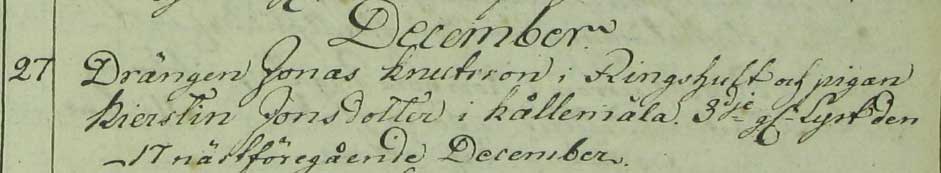 December.
27 Drängen Jonas Knutsson i Ringshult och pigan
Kierstin Jonsdotter i Kållemåla. 3dje g. Lyst den
17 nästföregående December.